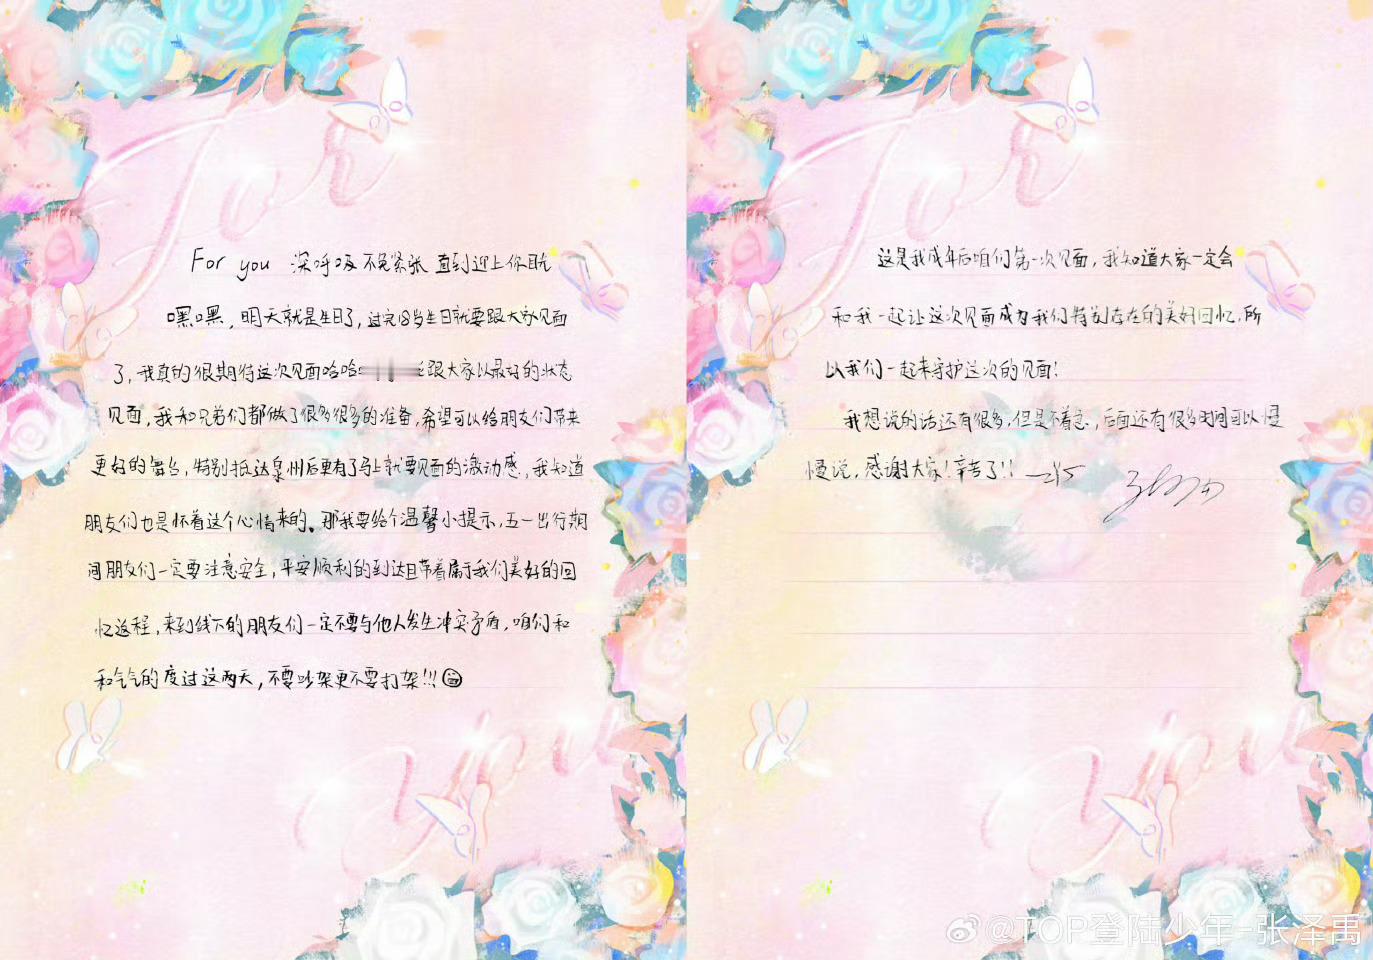 For
For you 深呼吸 不免紧张 直到迎上你目光
嘿嘿，明天就是生日了，过完18岁生日就要跟大家见面
了，我真的很期待这次见面哈哈 跟大家以最好的状态
见面，我和兄弟们都做了很多很多的准备，希望可以给朋友们带来
更好的舞台，特别抵达泉州后更有了马上就要见面的激动感，我知道
朋友们也是怀着这个心情来的。那我要给个温馨小提示，五一出行期
间朋友们一定要注意安全，平安顺利的到达且带着属于我们美好的回
忆返程，来到线下的朋友们一定不要与他人发生冲突矛盾，咱们和
和气气的度过这两天，不要吵架更不要打架!!!
You
For
这是我成年后咱们第一次见面，我知道大家一定会
和我一起让这次见面成为我们特别存在的美好回忆，所
以我们一起来守护这次的见面!
我想说的话还有很多，但是不着急，后面还有很多时间可以慢
慢说，感谢大家!辛苦了!!
You
@TOP登陆少年-张泽禹